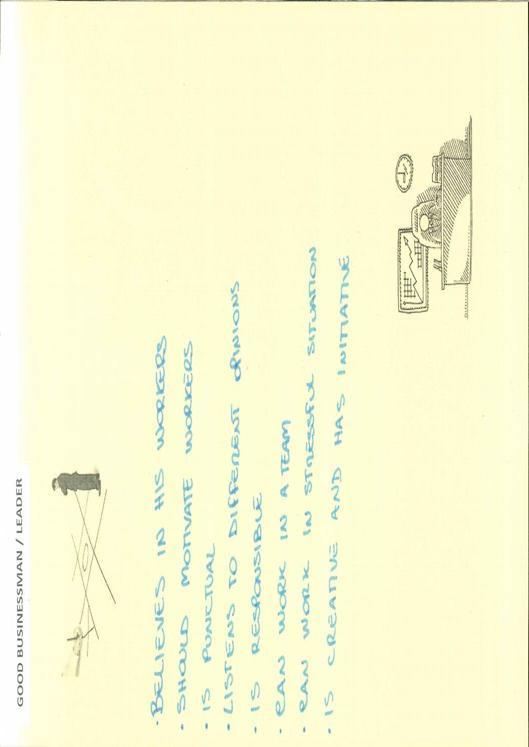 GOOD BUSINESSMAN / LEADER
· BELIEVES IN HIS WORKERS
· SHOULD MOTIVATE WORKERS
· IS PUNCTUAL
· LISTENS TO DIFFERENT OPINIONS
· IS RESPONSIBLE
· CAN WORK IN A TEAM
· CAN WORK IN STRESSFUL SITUATION
· IS CREATIVE AND HAS INITIATIVE